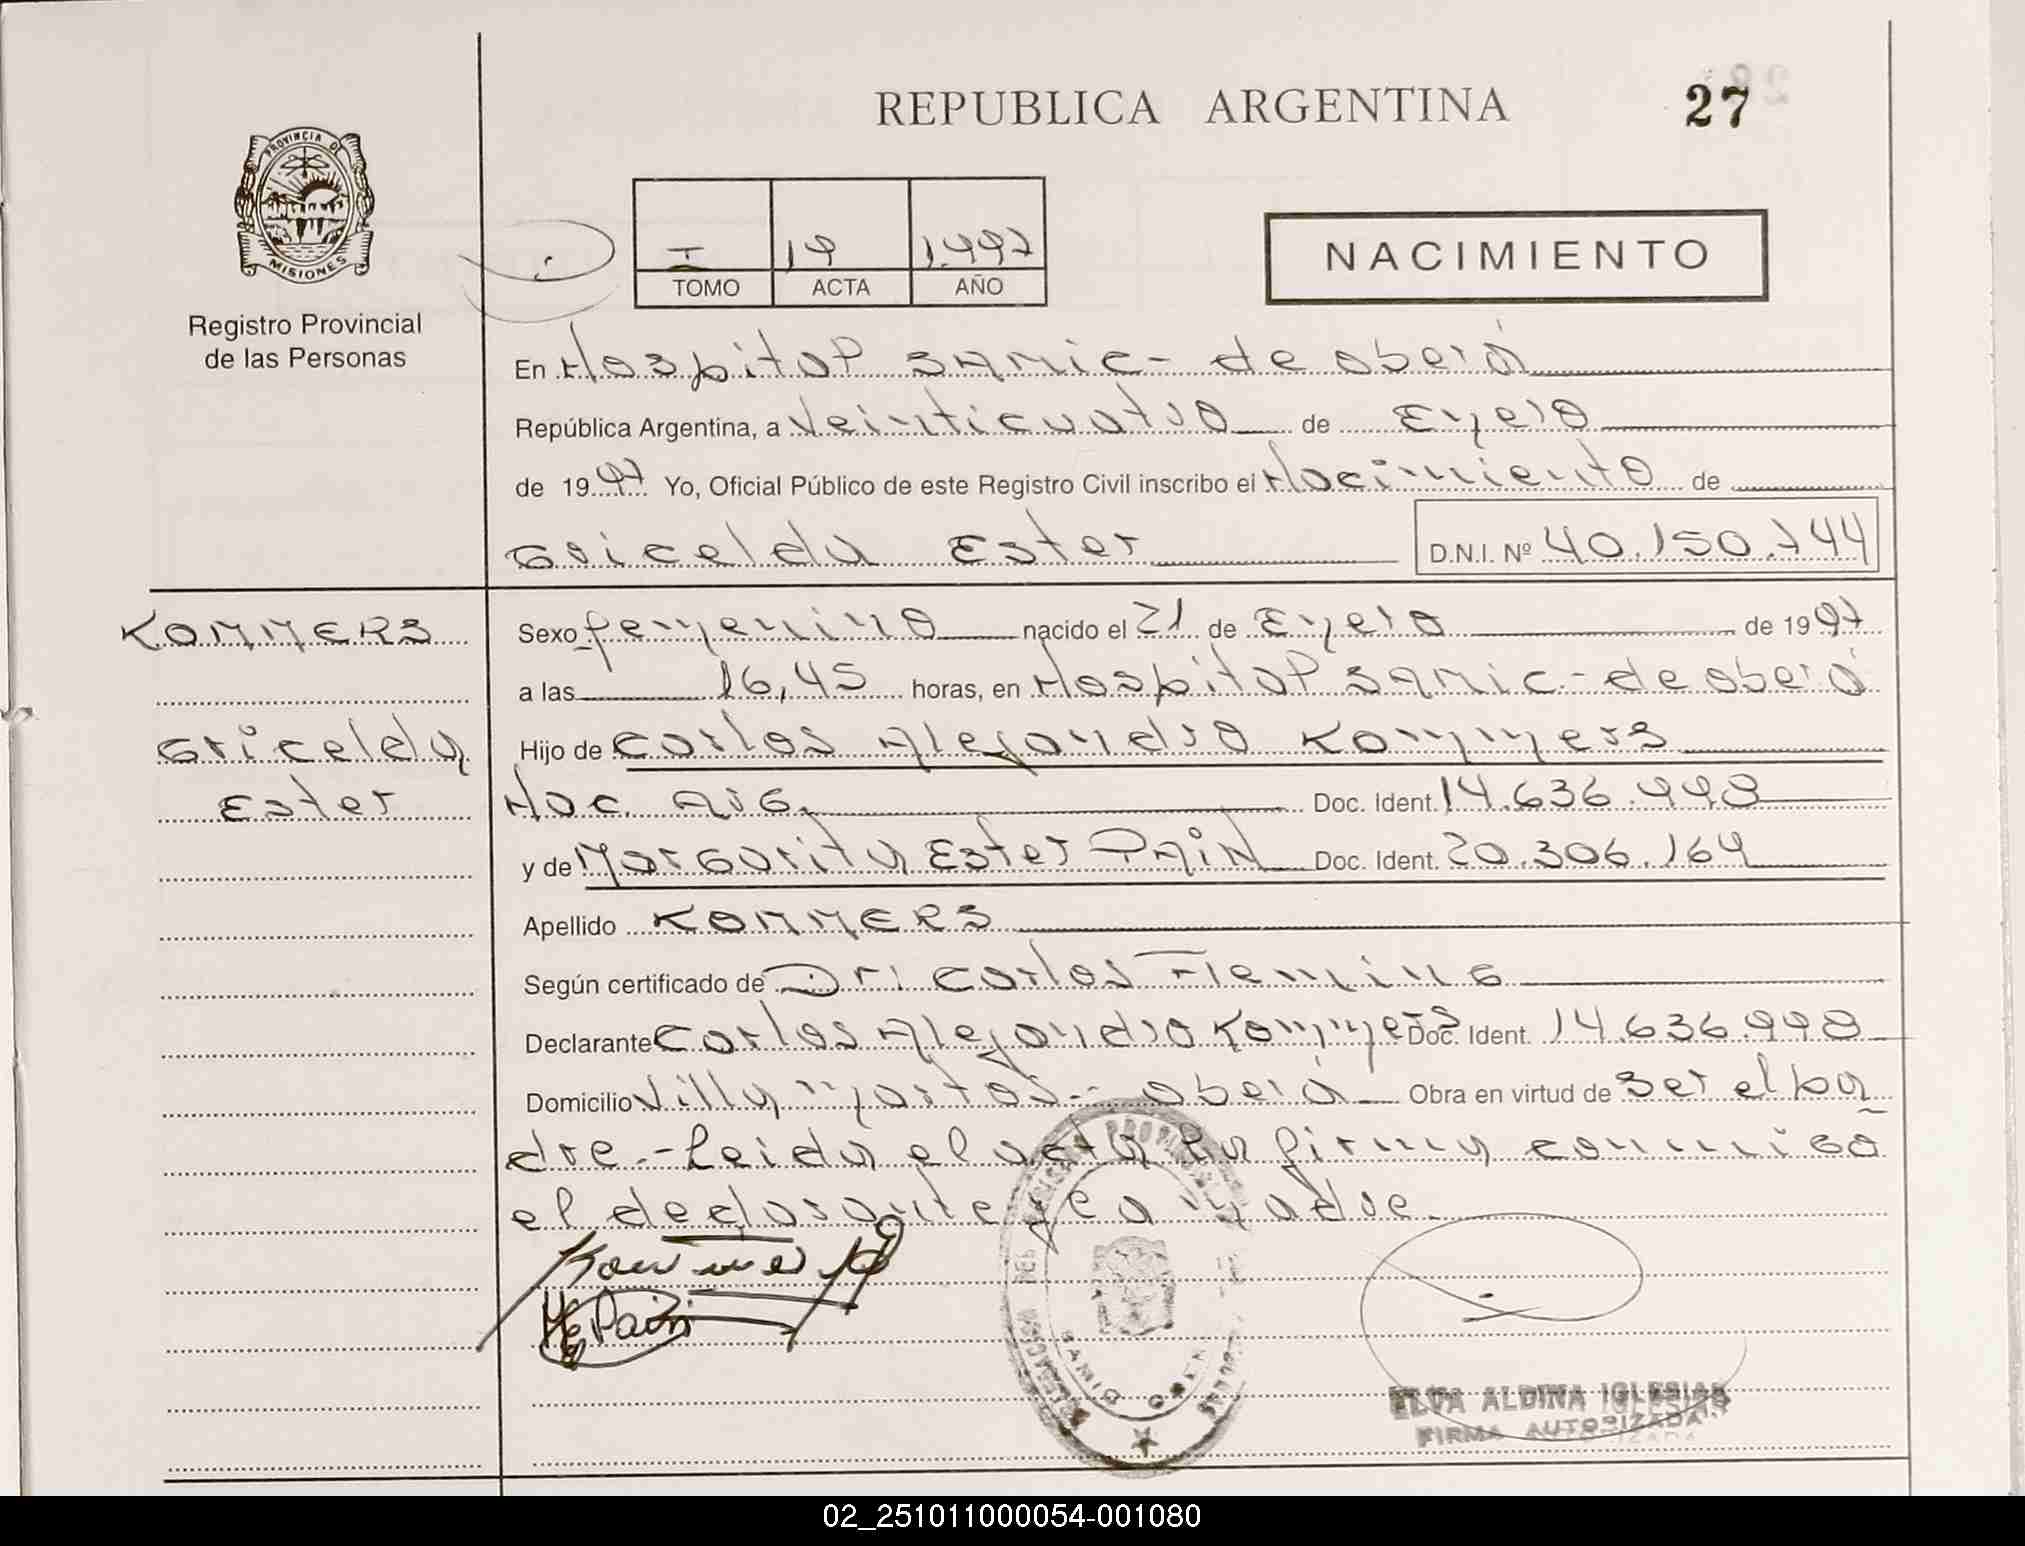 REPUBLICA ARGENTINA
27
PROVINCIA DE
MISIONES
Registro Provincial
de las Personas
I 19 1.997
TOMO ACTA AÑO
NACIMIENTO
En Hospital SAMIC - de oberá
República Argentina, a Veinticuatro de Enero
de 1997 Yo, Oficial Público de este Registro Civil inscribo el Nacimiento de
Gricelda Ester D.N.I. Nº 40.150.744
KOMMERS
Gricelda
Ester
Sexo femenino nacido el 21 de Enero de 1997
a las 16,45 horas, en Hospital SAMIC - de oberá
Hijo de Carlos Alejandro Kommers
Nac. Arg. Doc. Ident. 14.636.998
y de Margarita Ester PAIN Doc. Ident. 20.306.164
Apellido KOMMERS
Según certificado de Dr: Carlos Fleming
Declarante Carlos Alejandro Kommers Doc. Ident. 14.636.998
Domicilio Villa Martos - oberá Obra en virtud de ser el pa
dre.- Leida el acta la firma conmigo
el declarante y la madre.
Kommers
ME Pain
ELVA ALDINA IGLESIAS
FIRMA AUTORIZADA
02_251011000054-001080